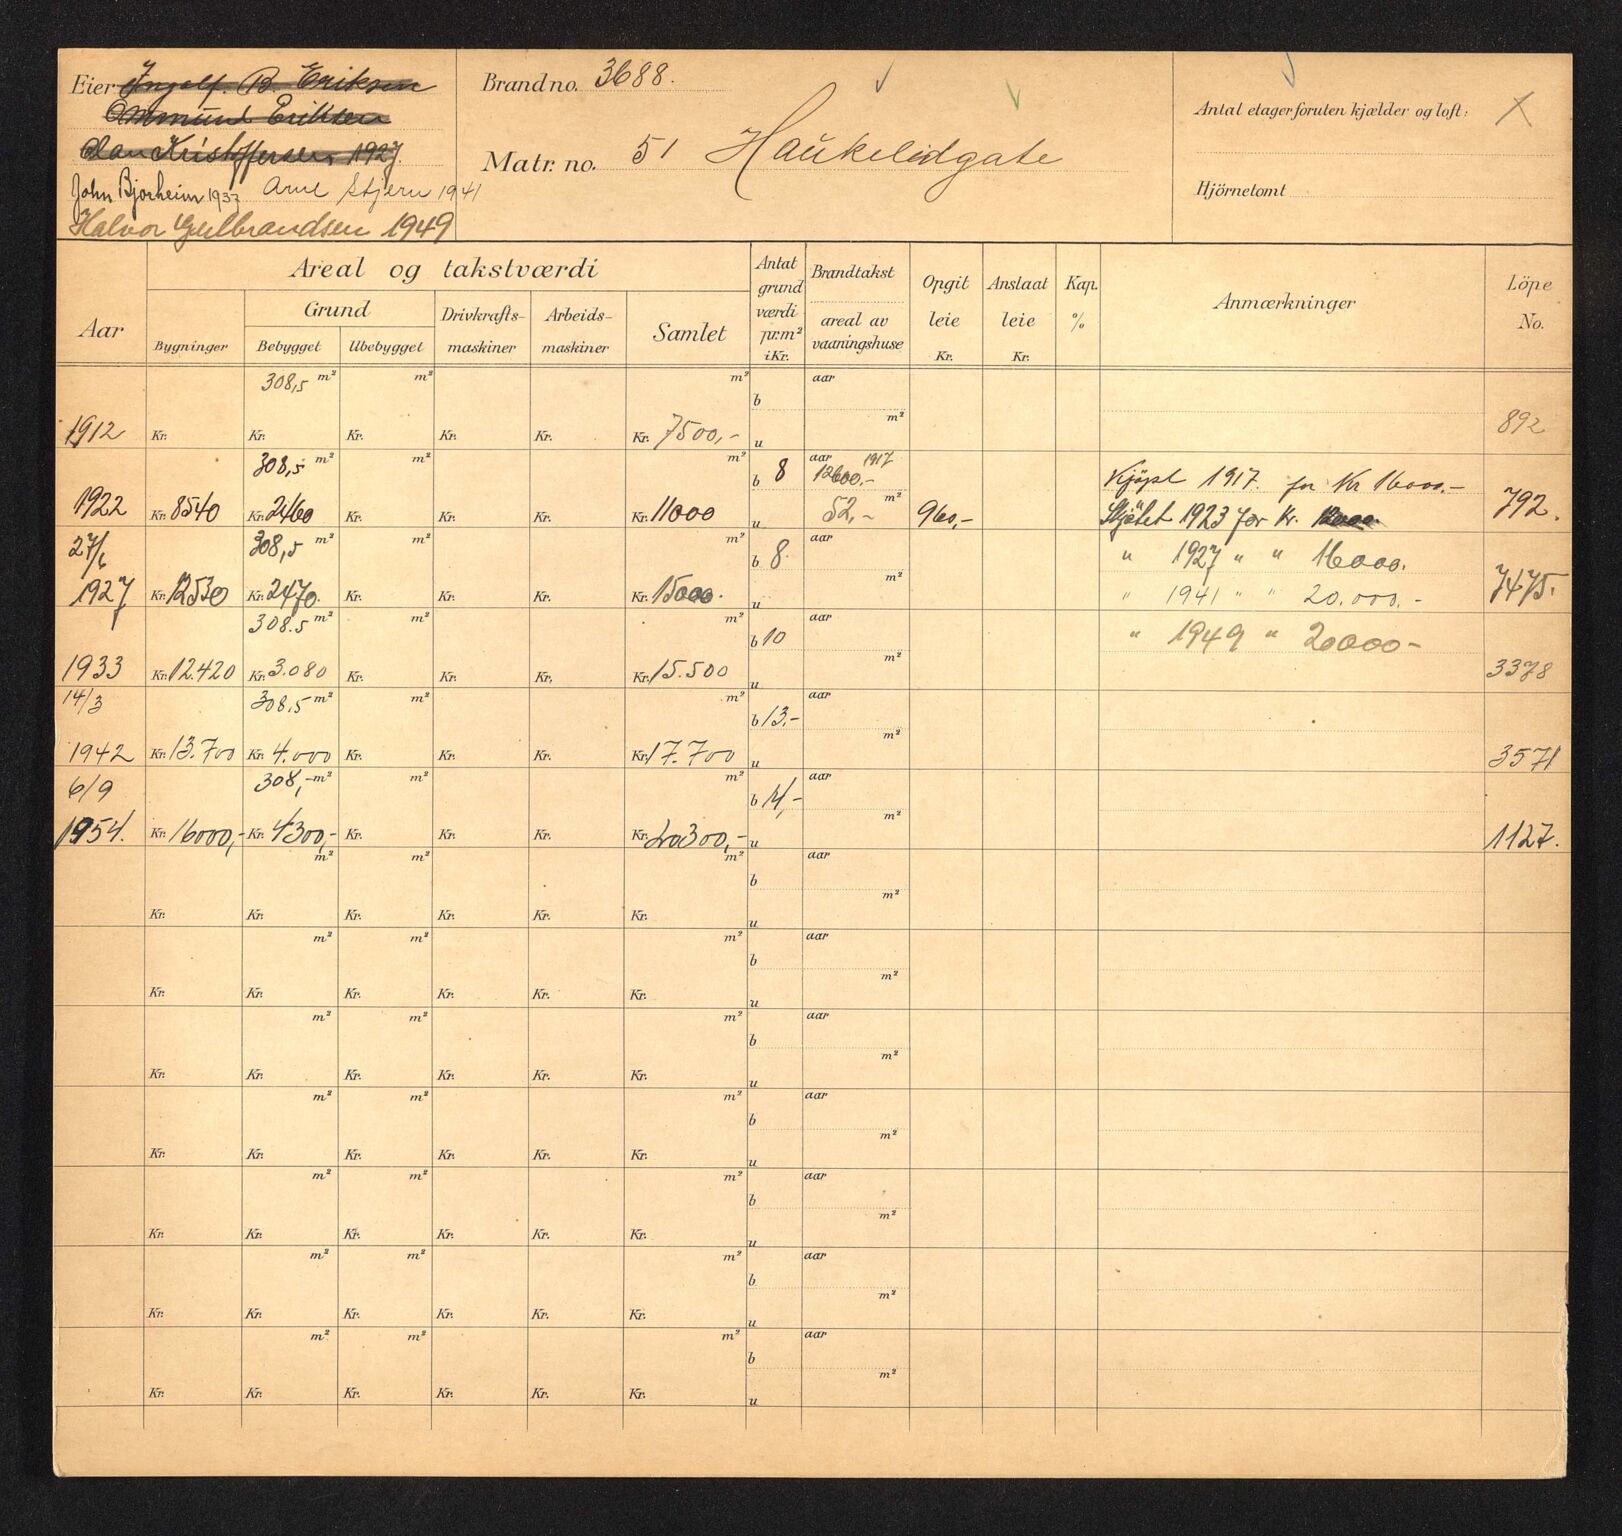 Eier Ingolf. B. Eriksen
Ommund Eriksen
Olav Kristoffersen 1927.
John Bjorheim 1937 Arne Stjern 1941
Halvor Gulbrandsen 1949
Brand no. 3688.
Matr. no. 51 Haukelidgate
Antal etager foruten kjælder og loft:
Hjörnetomt
Aar
Areal og takstværdi
Bygninger
Grund
Bebygget
Ubebygget
Drivkrafts-
maskiner
Arbeids-
maskiner
Samlet
Antat
grund
værdi
pr. m²
i Kr.
Brandtakst
areal av
vaaningshuse
Opgit
leie
Kr.
Anslaat
leie
Kr.
Kap.
%
Anmærkninger
Löpe
No.
308,5 m² m² m² aar
b
m²
1912 Kr. Kr. Kr. Kr. Kr. Kr. 7500,- u 892
308,5 m² m² m² b 8 aar 1917
12600.- Kjøpt 1917. for Kr 16000.-
m²
1922 Kr. 8540 Kr. 2460 Kr. Kr. Kr. Kr. 11000 u 52,- 960,- Skjötet 1923 for Kr. 12000. 792.
27/6 308,5 m² m² m² b 8. aar " 1927 " " 16000.
m²
1927 Kr. 12530 Kr. 2470. Kr. Kr. Kr. Kr. 15000. u " 1941 " " 20.000.- 7475.
308.5 m² m² m² b 10 aar " 1949 " 20000-
m²
1933 Kr. 12.420 Kr. 3.080 Kr. Kr. Kr. Kr. 15.500 u 3378
14/3 308,5 m² m² m² b 13,- aar
m²
1942 Kr. 13.700 Kr. 4.000 Kr. Kr. Kr. Kr. 17.700 u 3571
6/9 308,- m² m² m² b 14,- aar
m²
1954. Kr. 16000,- Kr. 4300,- Kr. Kr. Kr. Kr. 20300,- u 1127.
m² m² m² aar
b
m²
Kr. Kr. Kr. Kr. Kr. Kr. u
m² m² m² aar
b
m²
Kr. Kr. Kr. Kr. Kr. Kr. u
m² m² m² aar
b
m²
Kr. Kr. Kr. Kr. Kr. Kr. u
m² m² m² aar
b
m²
Kr. Kr. Kr. Kr. Kr. Kr. u
m² m² m² aar
b
m²
Kr. Kr. Kr. Kr. Kr. Kr. u
m² m² m² aar
b
m²
Kr. Kr. Kr. Kr. Kr. Kr. u
m² m² m² aar
b
m²
Kr. Kr. Kr. Kr. Kr. Kr. u